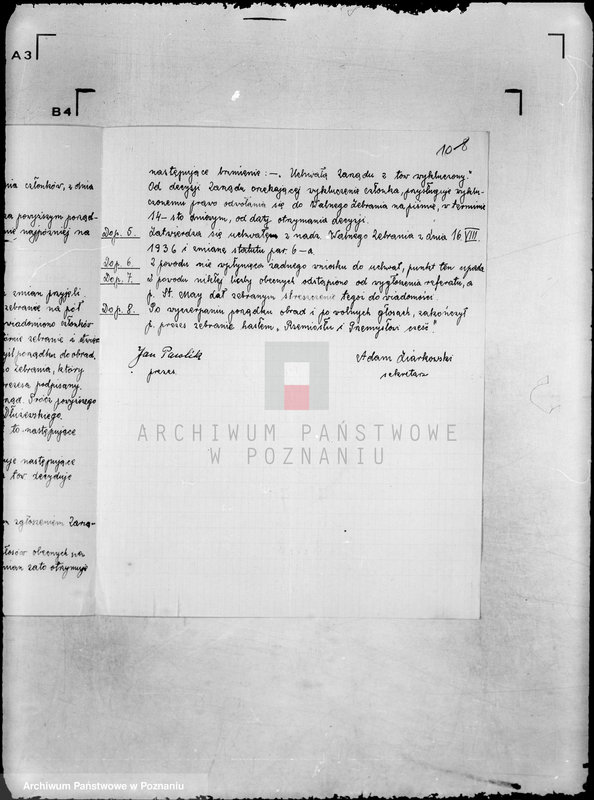 A3
B4
10 8
nia członków, z dnia
powyższym porząd-
nie najpóźniej na
zmian przyjęli
zebranie na pół
wiadomiono członków
porządku do obrad,
zebrania, który
prezesa podpisany.
Prócz powyższego
Dłużewskiego.
to następujące
następujące
tow decyduje
zgłoszeniem Zarzą-
głosów obecnych na
zato otrzymuje
następujące brzmienie: —. Uchwałą Zarządu z tow wykluczony."
Od decyzji Zarządu orzekającej wykluczenie członka, przysługuje wyklu-
czonemu prawo odwołania się do Walnego Zebrania na piśmie, w terminie
14-sto dniowym, od daty otrzymania decyzji.
Do p. 5. Zatwierdza się uchwałę z nadz. Walnego Zebrania z dnia 16 VIII.
1936 i zmianę statutu par. 6-a.
Do p. 6. Z powodu nie wpłynięcia żadnego wniosku do uchwał, punkt ten upada
Do p. 7. Z powodu nikłej liczby obecnych odstąpiono od wygłoszenia referatu, a
p. St. May dał zebranym streszczenie tegoż do wiadomości.
Do p. 8. Po wyczerpaniu porządku obrad i po wolnych głosach, zakończył
p. prezes zebranie hasłem, "Rzemiosłu i Przemysłowi cześć"
Jan Pawlik
prezes.
Adam Ziarkowski
sekretarz
ARCHIWUM PAŃSTWOWE
W POZNANIU
Archiwum Państwowe w Poznaniu